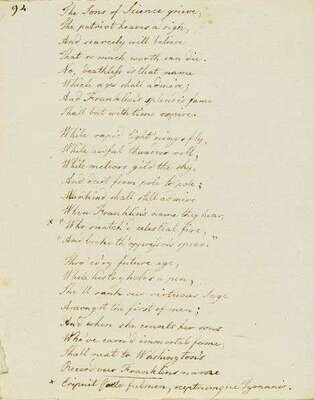 94
The Sons of Science grieve,
The patriot heaves a sigh,
And scarcely will believe
That so much worth can die.
No, deathless is that name
Which ages shall admire,
And Franklin's splendid fame
Shall but with time expire.
While rapid light'nings fly,
While awful thunders roll,
While meteors gild the sky,
And dart from pole to pole;
Mankind shall still admire
When Franklin's name they hear,
× "Who snatch'd celestial fire,
"And broke th' oppressors spear."
Thro' ev'ry future age,
While history holds a pen,
She'll rank our virtuous Sage
Amongst the first of men;
And when she counts her sons
Who've earn'd immortal fame
Shall next to Washington's
Record our Franklin's name
× Eripuit fulmen, sceptrumque Tyrannis.